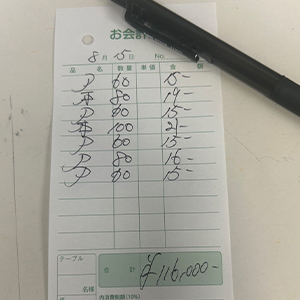 お会計
8月15日 No.
品名 数量 単価 金額
P 60 15-
80 14-
P 60 15-
100 21-
P 60 15-
P 80 16-
P 60 15-
テーブル
名様
合計 ¥116,000-
内消費税額(10%)